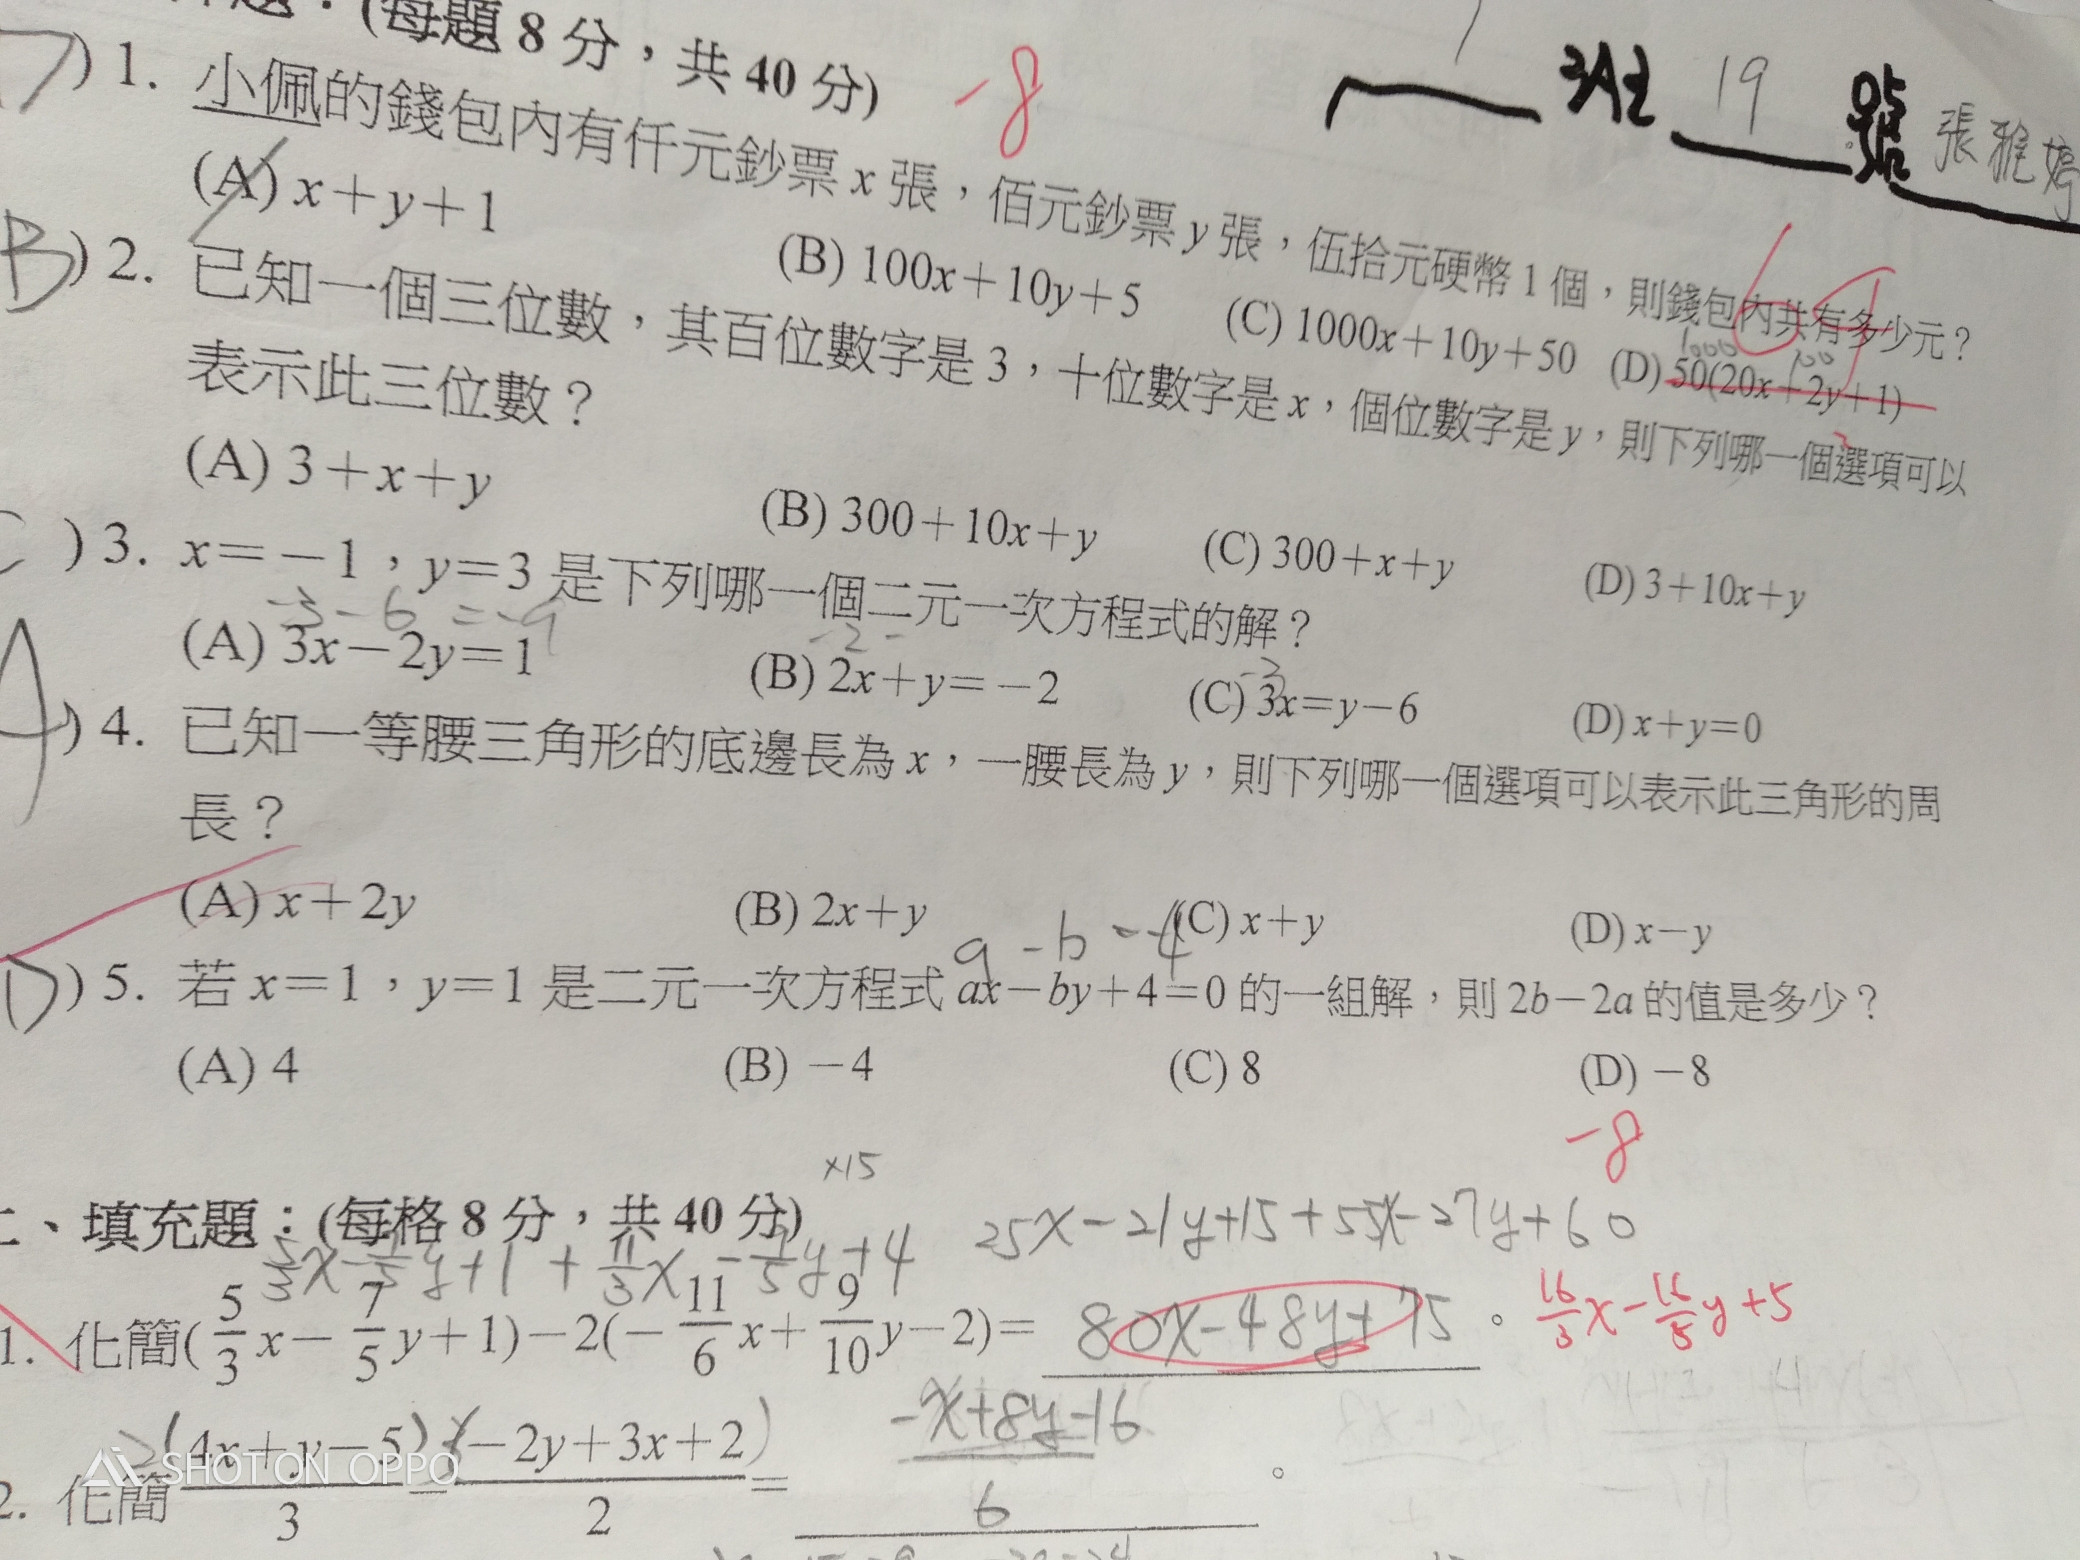 (每題 8 分，共 40 分)
-8
班 19 號 張雅婷
) 1. 小佩的錢包內有仟元鈔票 x 張，佰元鈔票 y 張，伍拾元硬幣 1 個，則錢包內共有多少元？
1000 100
(A) x＋y＋1 (B) 100x＋10y＋5 (C) 1000x＋10y＋50 (D) 50(20x＋2y＋1)
B ) 2. 已知一個三位數，其百位數字是 3，十位數字是 x，個位數字是 y，則下列哪一個選項可以
表示此三位數？
(A) 3＋x＋y (B) 300＋10x＋y (C) 300＋x＋y (D) 3＋10x＋y
C ) 3. x＝－1，y＝3 是下列哪一個二元一次方程式的解？
-3-6=-9 -2- -3
(A) 3x－2y＝1 (B) 2x＋y＝－2 (C) 3x＝y－6 (D) x＋y＝0
A ) 4. 已知一等腰三角形的底邊長為 x，一腰長為 y，則下列哪一個選項可以表示此三角形的周
長？
(A) x＋2y (B) 2x＋y (C) x＋y (D) x－y
a-b=-4
D ) 5. 若 x＝1，y＝1 是二元一次方程式 ax－by＋4＝0 的一組解，則 2b－2a 的值是多少？
(A) 4 (B) －4 (C) 8 (D) －8
-8
×15
二、填充題：(每格 8 分，共 40 分)
25x-21y+15+55x-27y+60
5/3x-7/5y+1+11/3x-9/5y+4
1. 化簡(5/3x－7/5y＋1)－2(－11/6x＋9/10y－2)＝ 80x-48y+75 。 16/3x-16/5y+5
2. 化簡 (4x＋y－5)/3 － (－2y＋3x＋2)/2 ＝ -x+8y-16/6 。
SHOT ON OPPO